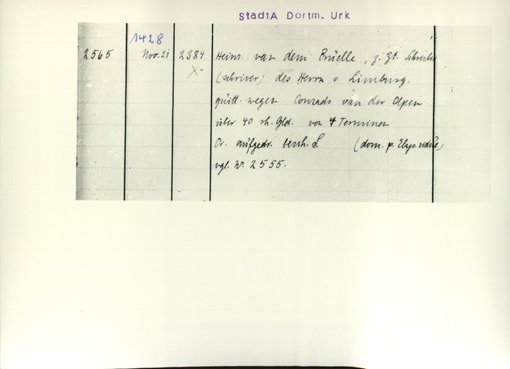 StadtA Dortm. Urk
1428
2565 Nov. 21 2384 Heinr. van dem Bruelle, z. Zt. Schreiber
(schriver) des Herrn v. Limburg,
quitt. wegen Conrads van der Alpen
über 40 rh. Gld. von 4 Terminen
Or. aufgedr. besch. S. (dom. p. Elys. vidue)
vgl. Nr. 2555.